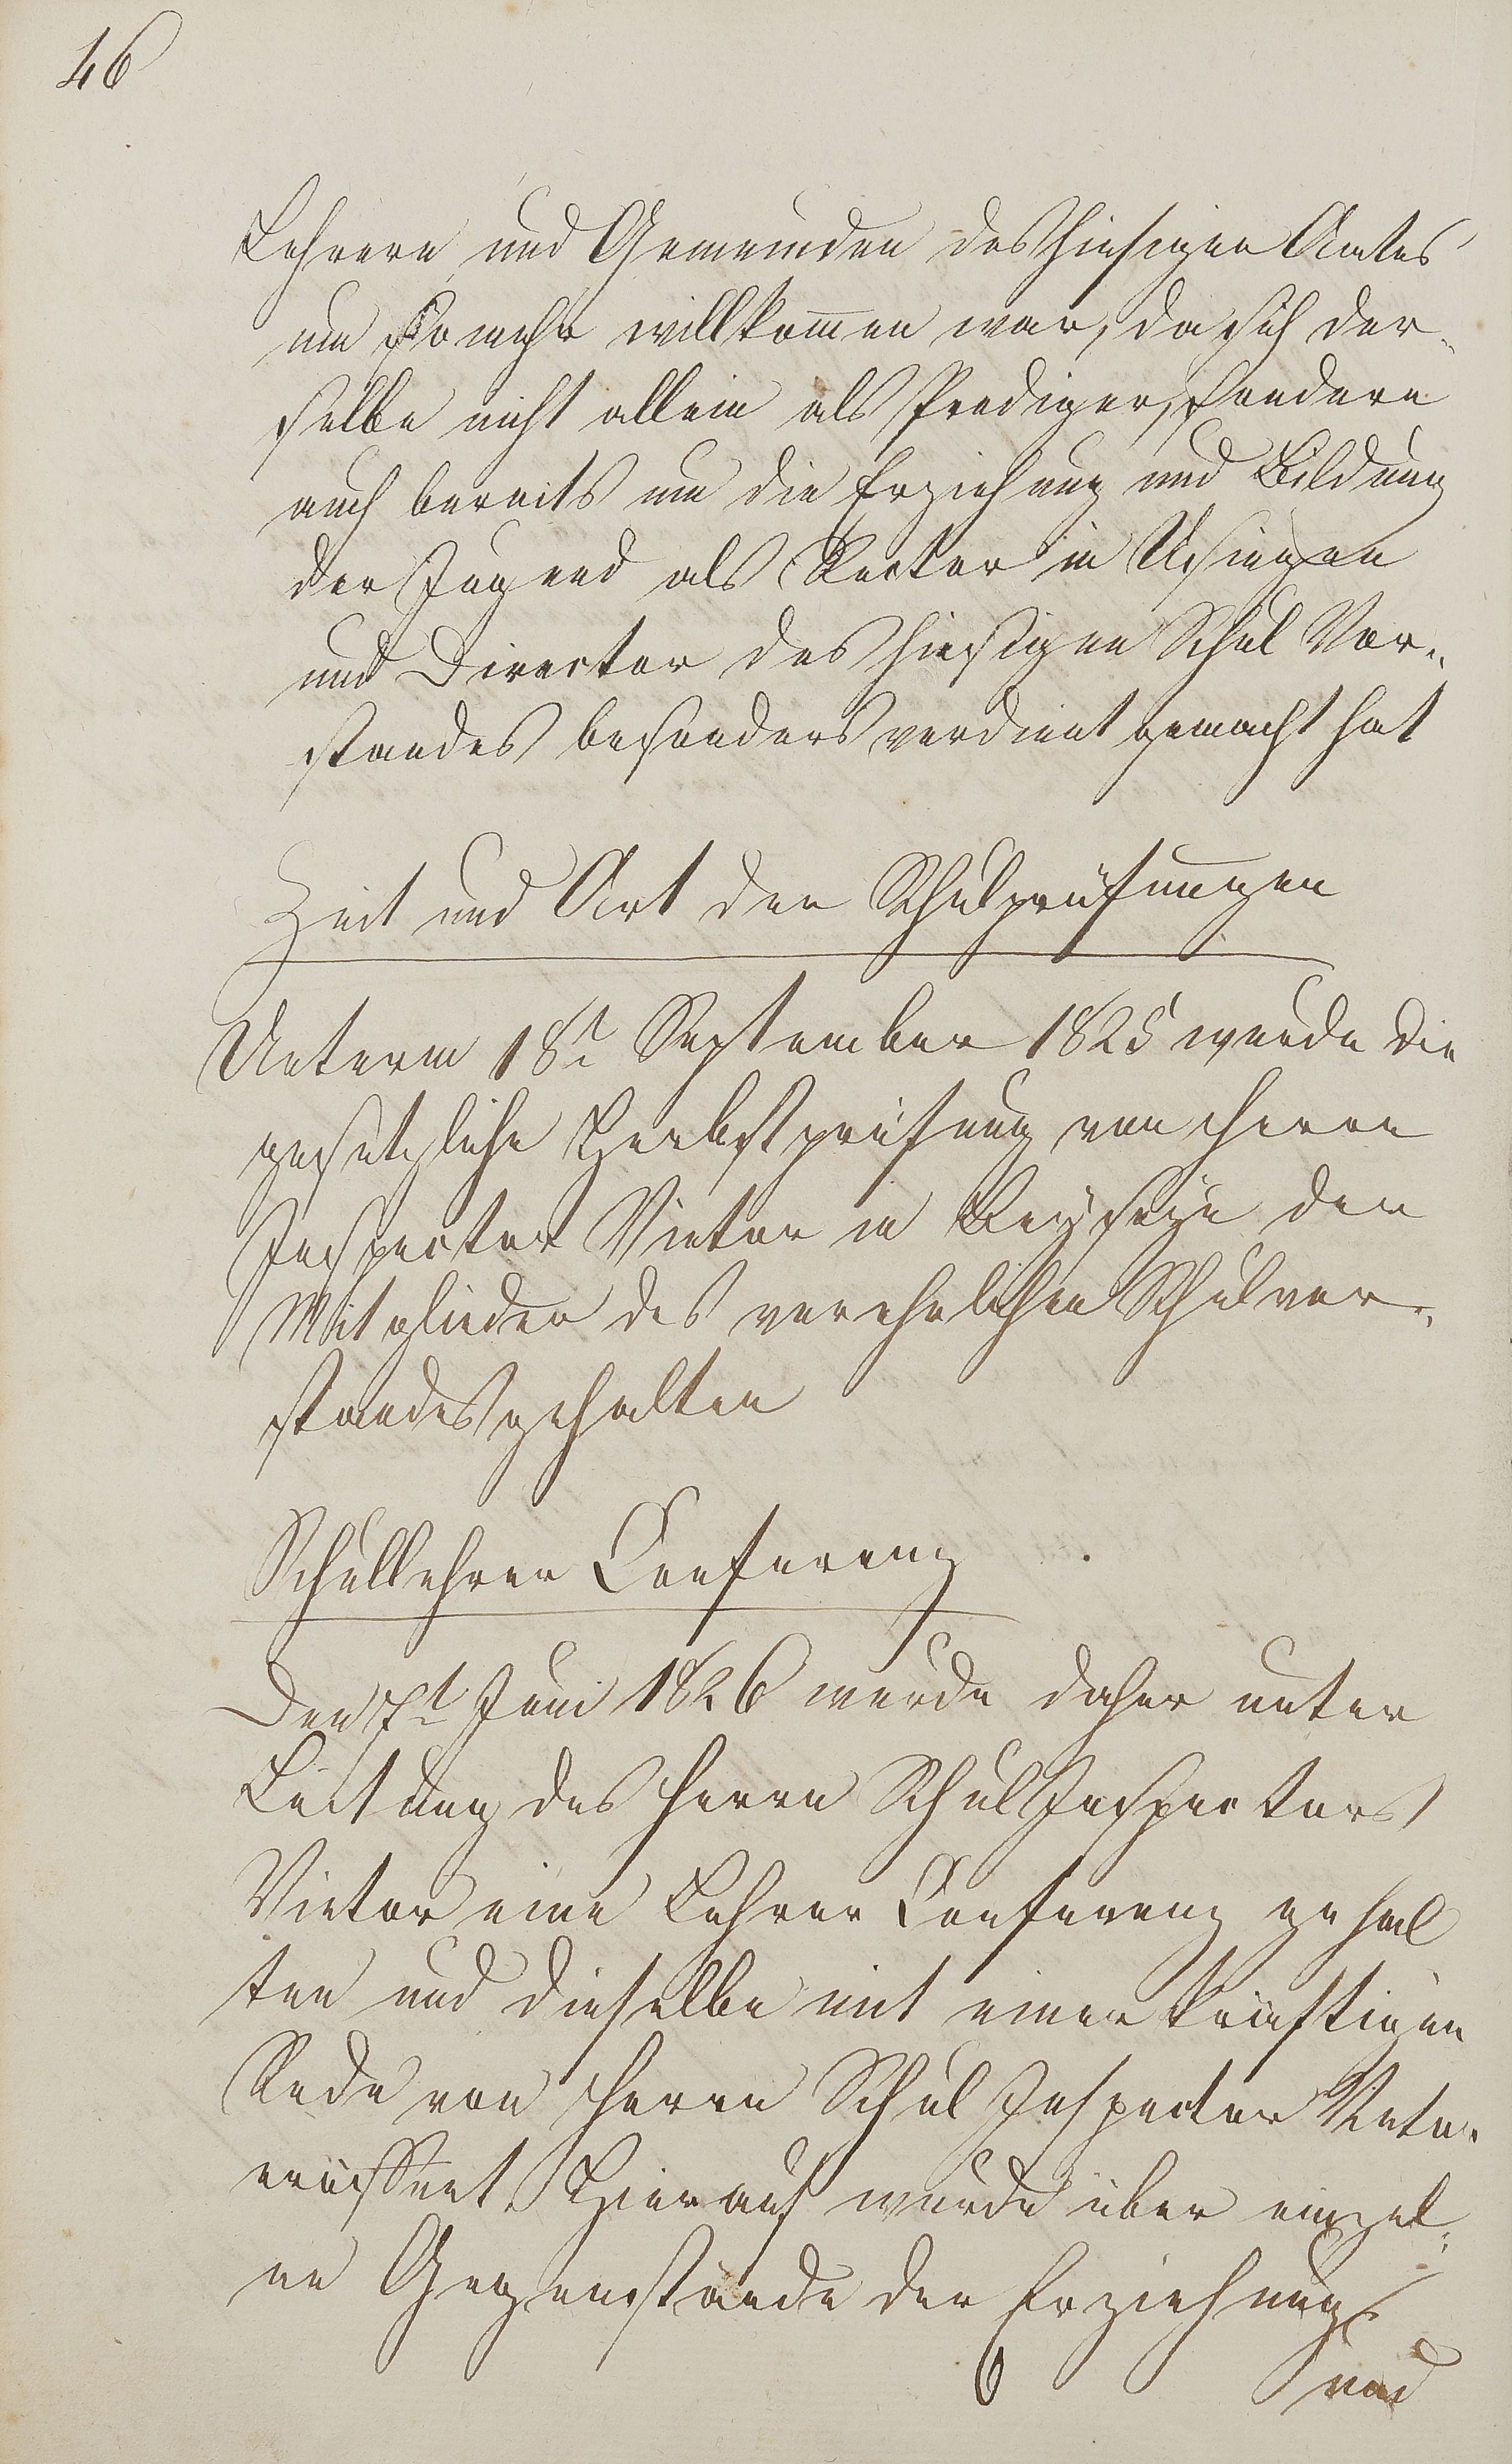 46
Lehrern und Gemeinden des hiesigen Amtes
um so mehr willkom̅en war, da sich der„
selbe nicht allein als Prediger, sondern
auch bereits um die Erziehung und Bildung
der Jugend als Rector in Usingen
und Director des hiesigen Schul Vor„
standes besonders verdient gemacht hat
Zeit und Art der Schulprüfungen
Unterm 18t September 1825 wurde die
gesetzliche Herbstprüfung von Herrn
Inspector Vietor in Beyseyn der
Mitglieder des verehrlichen Schulvor„
standes gehalten
Schullehrer Conferenz
Den 7t Juni 1826 wurde daher unter
Leitung des Herrn Schul Inspectors
Vietor eine Lehrer Conferenz gehal
ten und dieselbe mit einer kräftigen
Rede von Herrn Schul Inspector Vieto.
eröffnet. Hierauf wurde über einzel„
ne Gegenstände der Erziehung
und